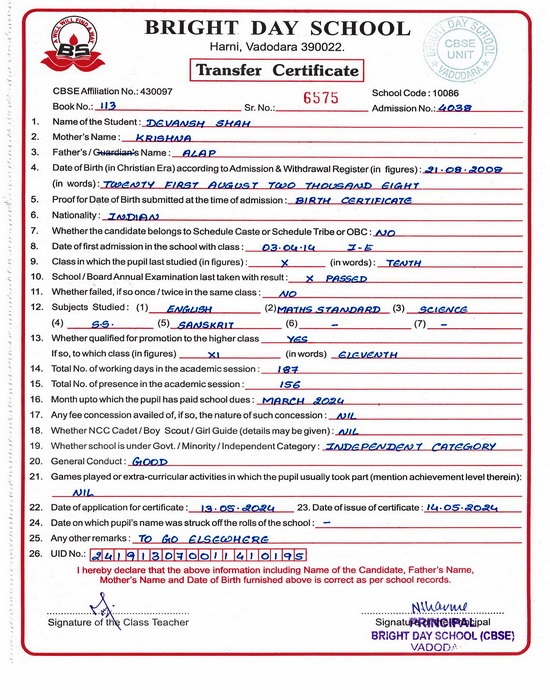 A WILL WILL FIND A WAY
BS
BRIGHT DAY SCHOOL
Harni, Vadodara 390022.
BRIGHT DAY SCHOOL
CBSE
UNIT
VADODARA
Transfer Certificate
CBSE Affiliation No.: 430097 School Code : 10086
Book No.: 113 Sr. No.: 6575 Admission No.: 4038
1. Name of the Student : DEVANSH SHAH
2. Mother's Name : KRISHNA
3. Father's / Guardian's Name : ALAP
4. Date of Birth (in Christian Era) according to Admission & Withdrawal Register (in figures) : 21-08-2008
(in words) : TWENTY FIRST AUGUST TWO THOUSAND EIGHT
5. Proof for Date of Birth submitted at the time of admission : BIRTH CERTIFICATE
6. Nationality : INDIAN
7. Whether the candidate belongs to Schedule Caste or Schedule Tribe or OBC : NO
8. Date of first admission in the school with class : 03-04-14 I-E
9. Class in which the pupil last studied (in figures) : X (in words) : TENTH
10. School / Board Annual Examination last taken with result : X PASSED
11. Whether failed, if so once / twice in the same class : NO
12. Subjects Studied : (1) ENGLISH (2) MATHS STANDARD (3) SCIENCE
(4) S.S. (5) SANSKRIT (6) – (7) –
13. Whether qualified for promotion to the higher class YES
If so, to which class (in figures) XI (in words) ELEVENTH
14. Total No. of working days in the academic session : 187
15. Total No. of presence in the academic session : 156
16. Month upto which the pupil has paid school dues : MARCH 2024
17. Any fee concession availed of, if so, the nature of such concession : NIL
18. Whether NCC Cadet / Boy Scout / Girl Guide (details may be given) : NIL
19. Whether school is under Govt. / Minority / Independent Category : INDEPENDENT CATEGORY
20. General Conduct : GOOD
21. Games played or extra-curricular activities in which the pupil usually took part (mention achievement level therein) :
NIL
22. Date of application for certificate : 13-05-2024 23. Date of issue of certificate : 14-05-2024
24. Date on which pupil's name was struck off the rolls of the school : –
25. Any other remarks : TO GO ELSEWHERE
26. UID No.: 241913070011410195
I hereby declare that the above information including Name of the Candidate, Father's Name,
Mother's Name and Date of Birth furnished above is correct as per school records.
Signature of the Class Teacher Signature of the Principal
PRINCIPAL
BRIGHT DAY SCHOOL (CBSE)
VADODA